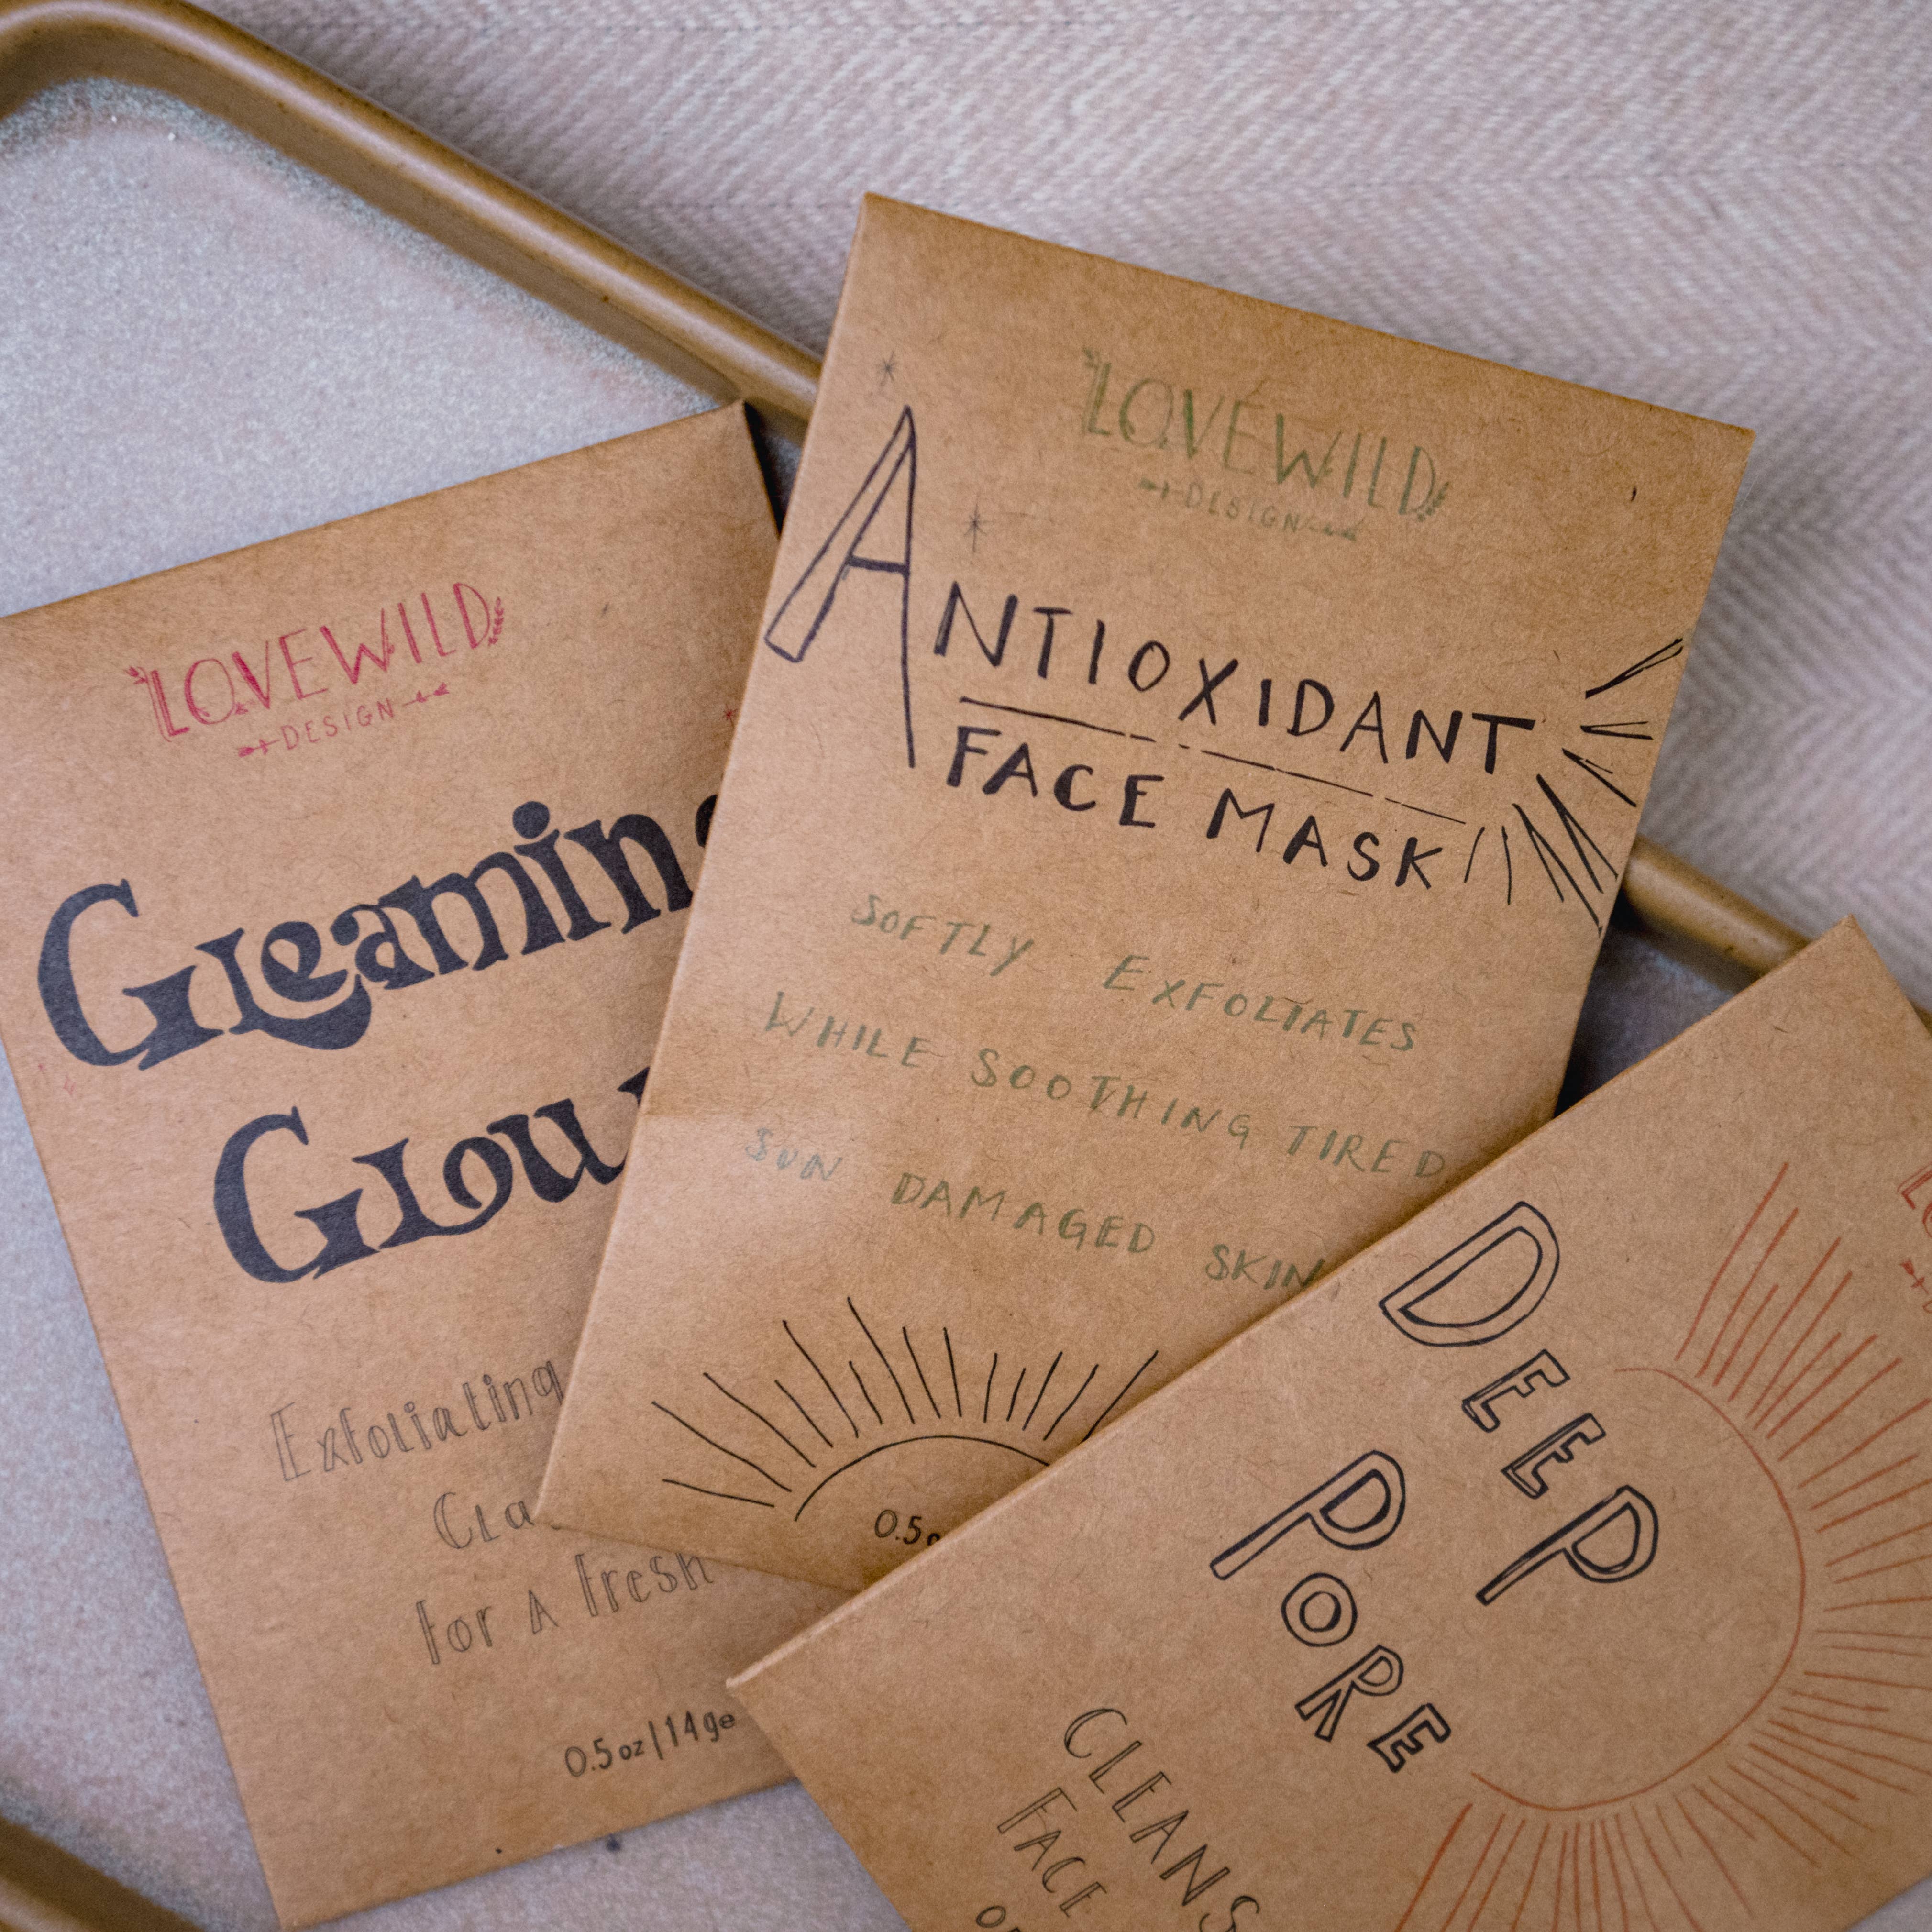 LOVEWILD
DESIGN
Gleamin
Glow
Exfoliating
Cla
For A Fresh
0.5 oz | 14ge
LOVEWILD
DESIGN
ANTIOXIDANT
FACE MASK
SOFTLY EXFOLIATES
WHILE SOOTHING TIRED
SUN DAMAGED SKIN
0.5
DEEP
PORE
CLEANS
FACE